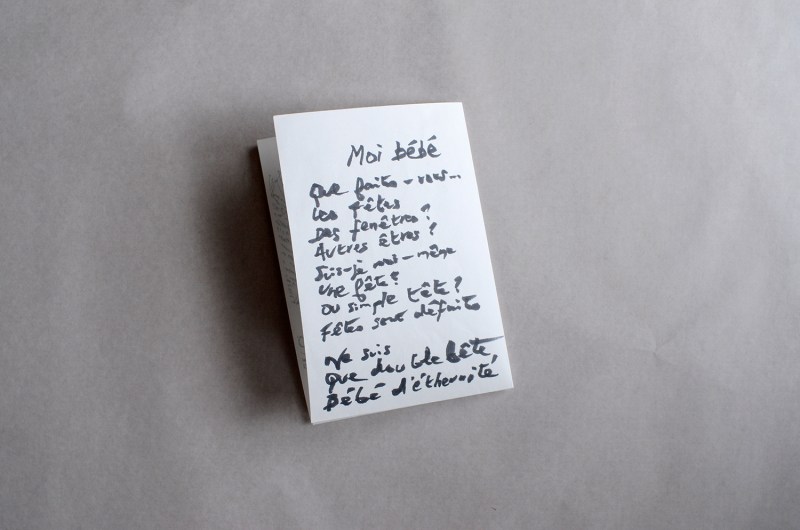 Moi bébé
Que faites-vous...
Les fêtes
Des fenêtres?
Autres êtres?
Suis-je moi-même
une fête?
ou simple tête?
Fêtes sont défaites
Ne suis
que double bête,
Bébé d'éthernité